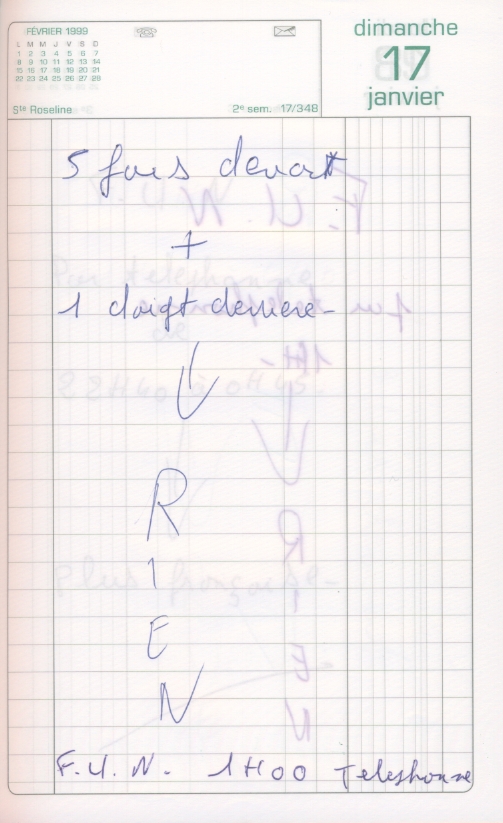 FÉVRIER 1999
L M M J V S D
1 2 3 4 5 6 7
8 9 10 11 12 13 14
15 16 17 18 19 20 21
22 23 24 25 26 27 28
Ste Roseline
2e sem. 17/348
dimanche
17
janvier
5 fois devant
+
1 doigt derriere -
R
I
E
N
F.U.N. 1H00 Telephonne